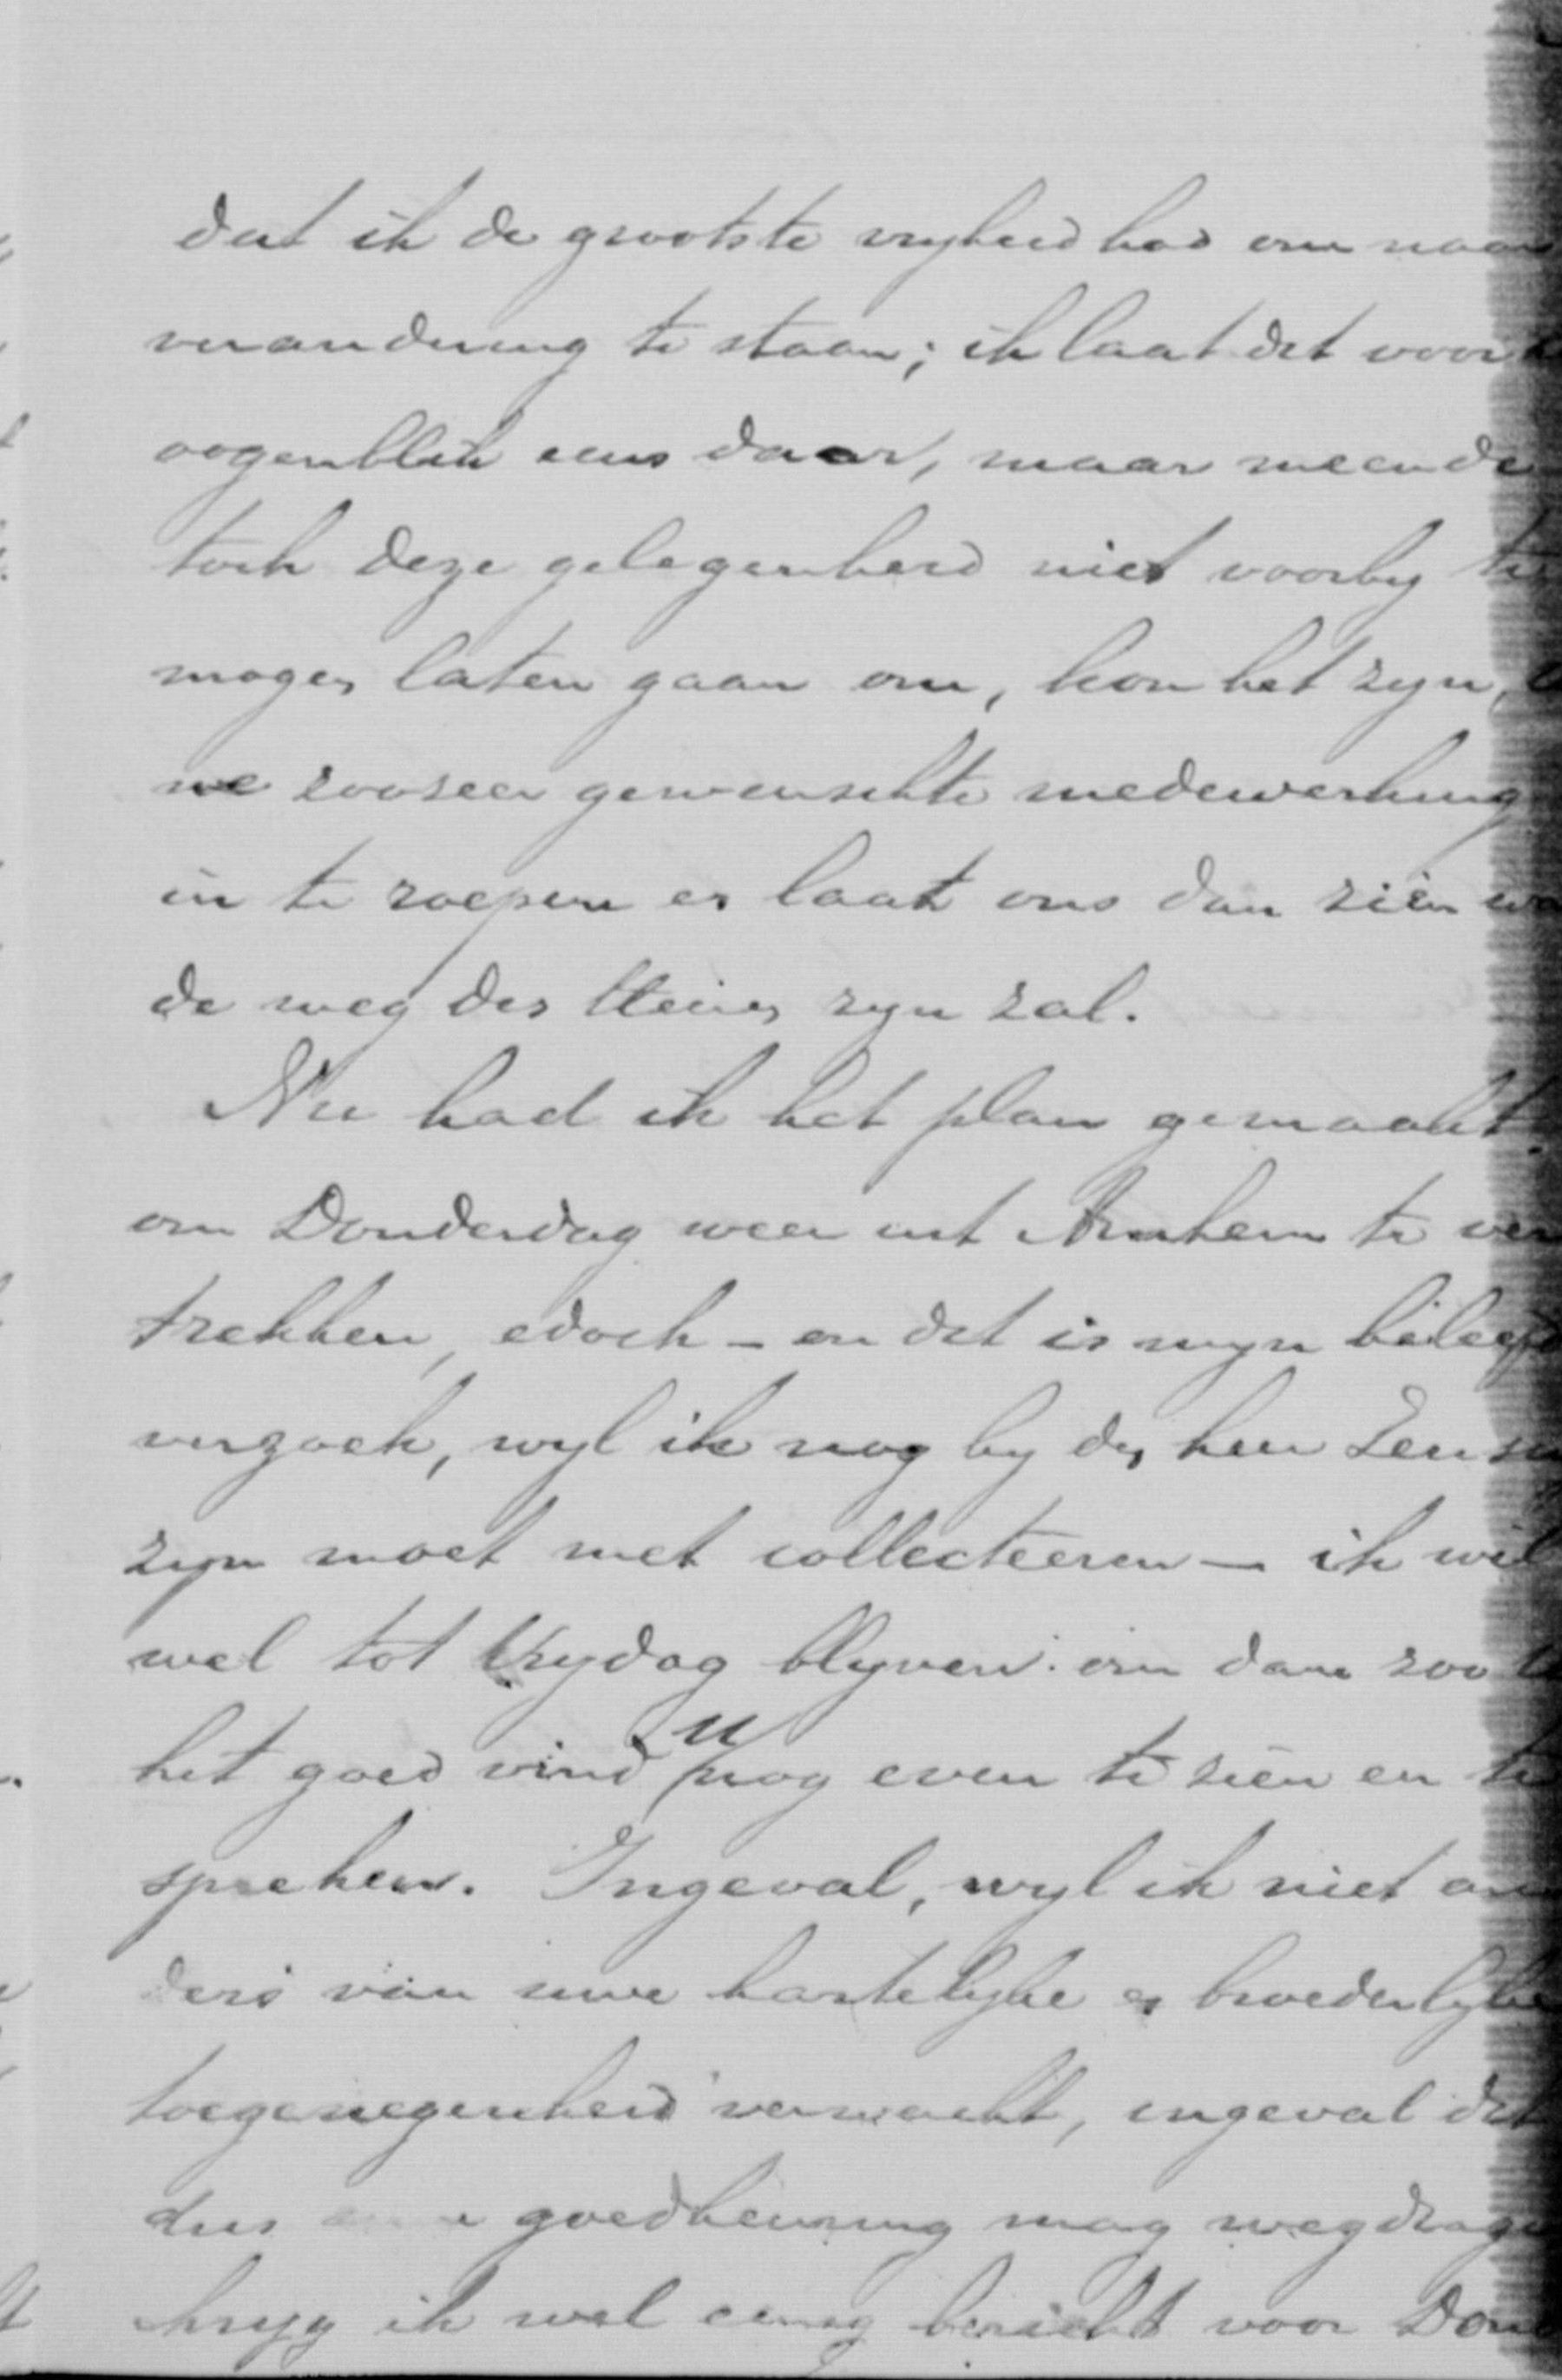 dat ik de grootste vryheid had om naar
verandering te staan; ik laat dit voor
oogenblik eens daar, maar meende
toch deze gelegenheid niet voorby te
mogen laten gaan om, kon het zyn,
we zoozeer gewenschte medewerking
in te roepen en laat ons dan zien
de weg des Heeren zyn zal.
Nu had ik het plan gemaakt
om Donderdag weer uit Arnhem te ver
trekken, edoch - en dit is myn beleefd
verzoek, wyl ik nog by den heer
zyn moet met collecteeren - ik wil
wel tot Vrydag blyven om dan zoo
het goed vind u nog even te zien en te
spreken. Ingeval, wyl ik niet an
ders van uwe hartelyke en broederlyke
toegenegenheid verwacht, ingeval dit
dus goedkeuring mag wegdragen
kryg ik wel eenig bericht voor Don